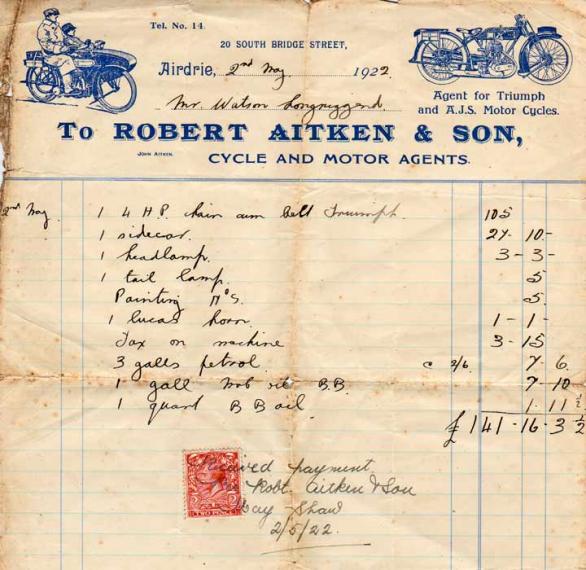 Tel. No. 14.
20 SOUTH BRIDGE STREET,
Airdrie, 2nd May 1922
Mr. Watson Longriggend.
Agent for Triumph
and A.J.S. Motor Cycles.
To ROBERT AITKEN & SON,
JOHN AITKEN.
CYCLE AND MOTOR AGENTS.
2nd May 1 4 H.P. chain cum belt Triumph. 105
1 sidecar. 27 - 10 -
1 headlamp. 3 - 3 -
1 tail lamp. 5
Painting Nos. 5
1 lucas horn. 1 - 1 -
Tax on machine 3 - 15
3 galls petrol. @ 2/6. 7 - 6.
1 gall mob oil B.B. 7 - 10
1 quart B B oil 1. 11 ½
£ 141 - 16 - 3 ½
Received payment
Robt. Aitken & Son
Shaw
2/5/22.
TWO PENCE